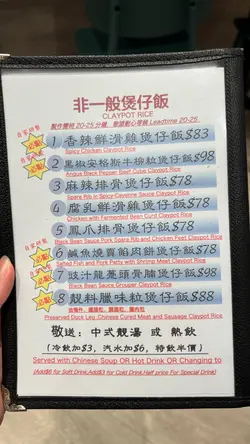 非一般煲仔飯
CLAYPOT RICE
製作需時 20-25 分鐘, 敬請耐心等候 Leadtime 20-25
1 香辣鮮滑雞煲仔飯$83
Spicy Chicken Claypot Rice
2 黑椒安格斯牛柳粒煲仔飯$98
Angus Black Pepper Beef Cube Claypot Rice
3 麻辣排骨煲仔飯$78
Spare Rib in Spicy Cayenne Sauce Claypot Rice
4 腐乳鮮滑雞煲仔飯$78
Chicken with Fermented Bean Curd Claypot Rice
5 鳳爪排骨煲仔飯$78
Black Bean Sauce Pork Spare Rib and Chicken Feet Claypot Rice
6 鹹魚燒賣餡肉餅煲仔飯$78
Salted Fish and Pork Patty with Shrimp Meat Claypot Rice
7 豉汁龍躉頭骨腩煲仔飯$98
Black Bean Sauce Grouper Claypot Rice
8 靚料臘味粒煲仔飯$88
Preserved Duck Leg, Chinese Cured Meat and Sausage Claypot Rice
敬送: 中式靚湯 或 熱飲
(冷飲加$3, 汽水加$6, 特飲半價)
Served with Chinese Soup OR Hot Drink OR Changing to
(Add$6 for Soft Drink,Add$3 for Cold Drink,Half price For Special Drink)